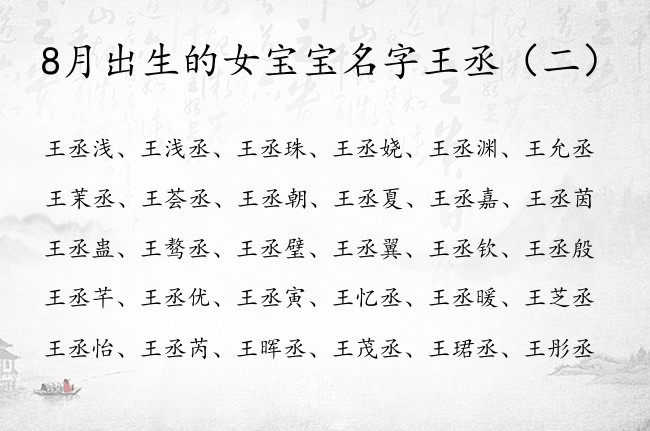 8月出生的女宝宝名字王丞（二）
王丞浅、王浅丞、王丞珠、王丞娆、王丞渊、王允丞
王茉丞、王荟丞、王丞朝、王丞夏、王丞嘉、王丞茵
王丞蛊、王骛丞、王丞璧、王丞翼、王丞钦、王丞殷
王丞芊、王丞优、王丞寅、王忆丞、王丞暖、王芝丞
王丞怡、王丞芮、王晖丞、王茂丞、王珺丞、王彤丞